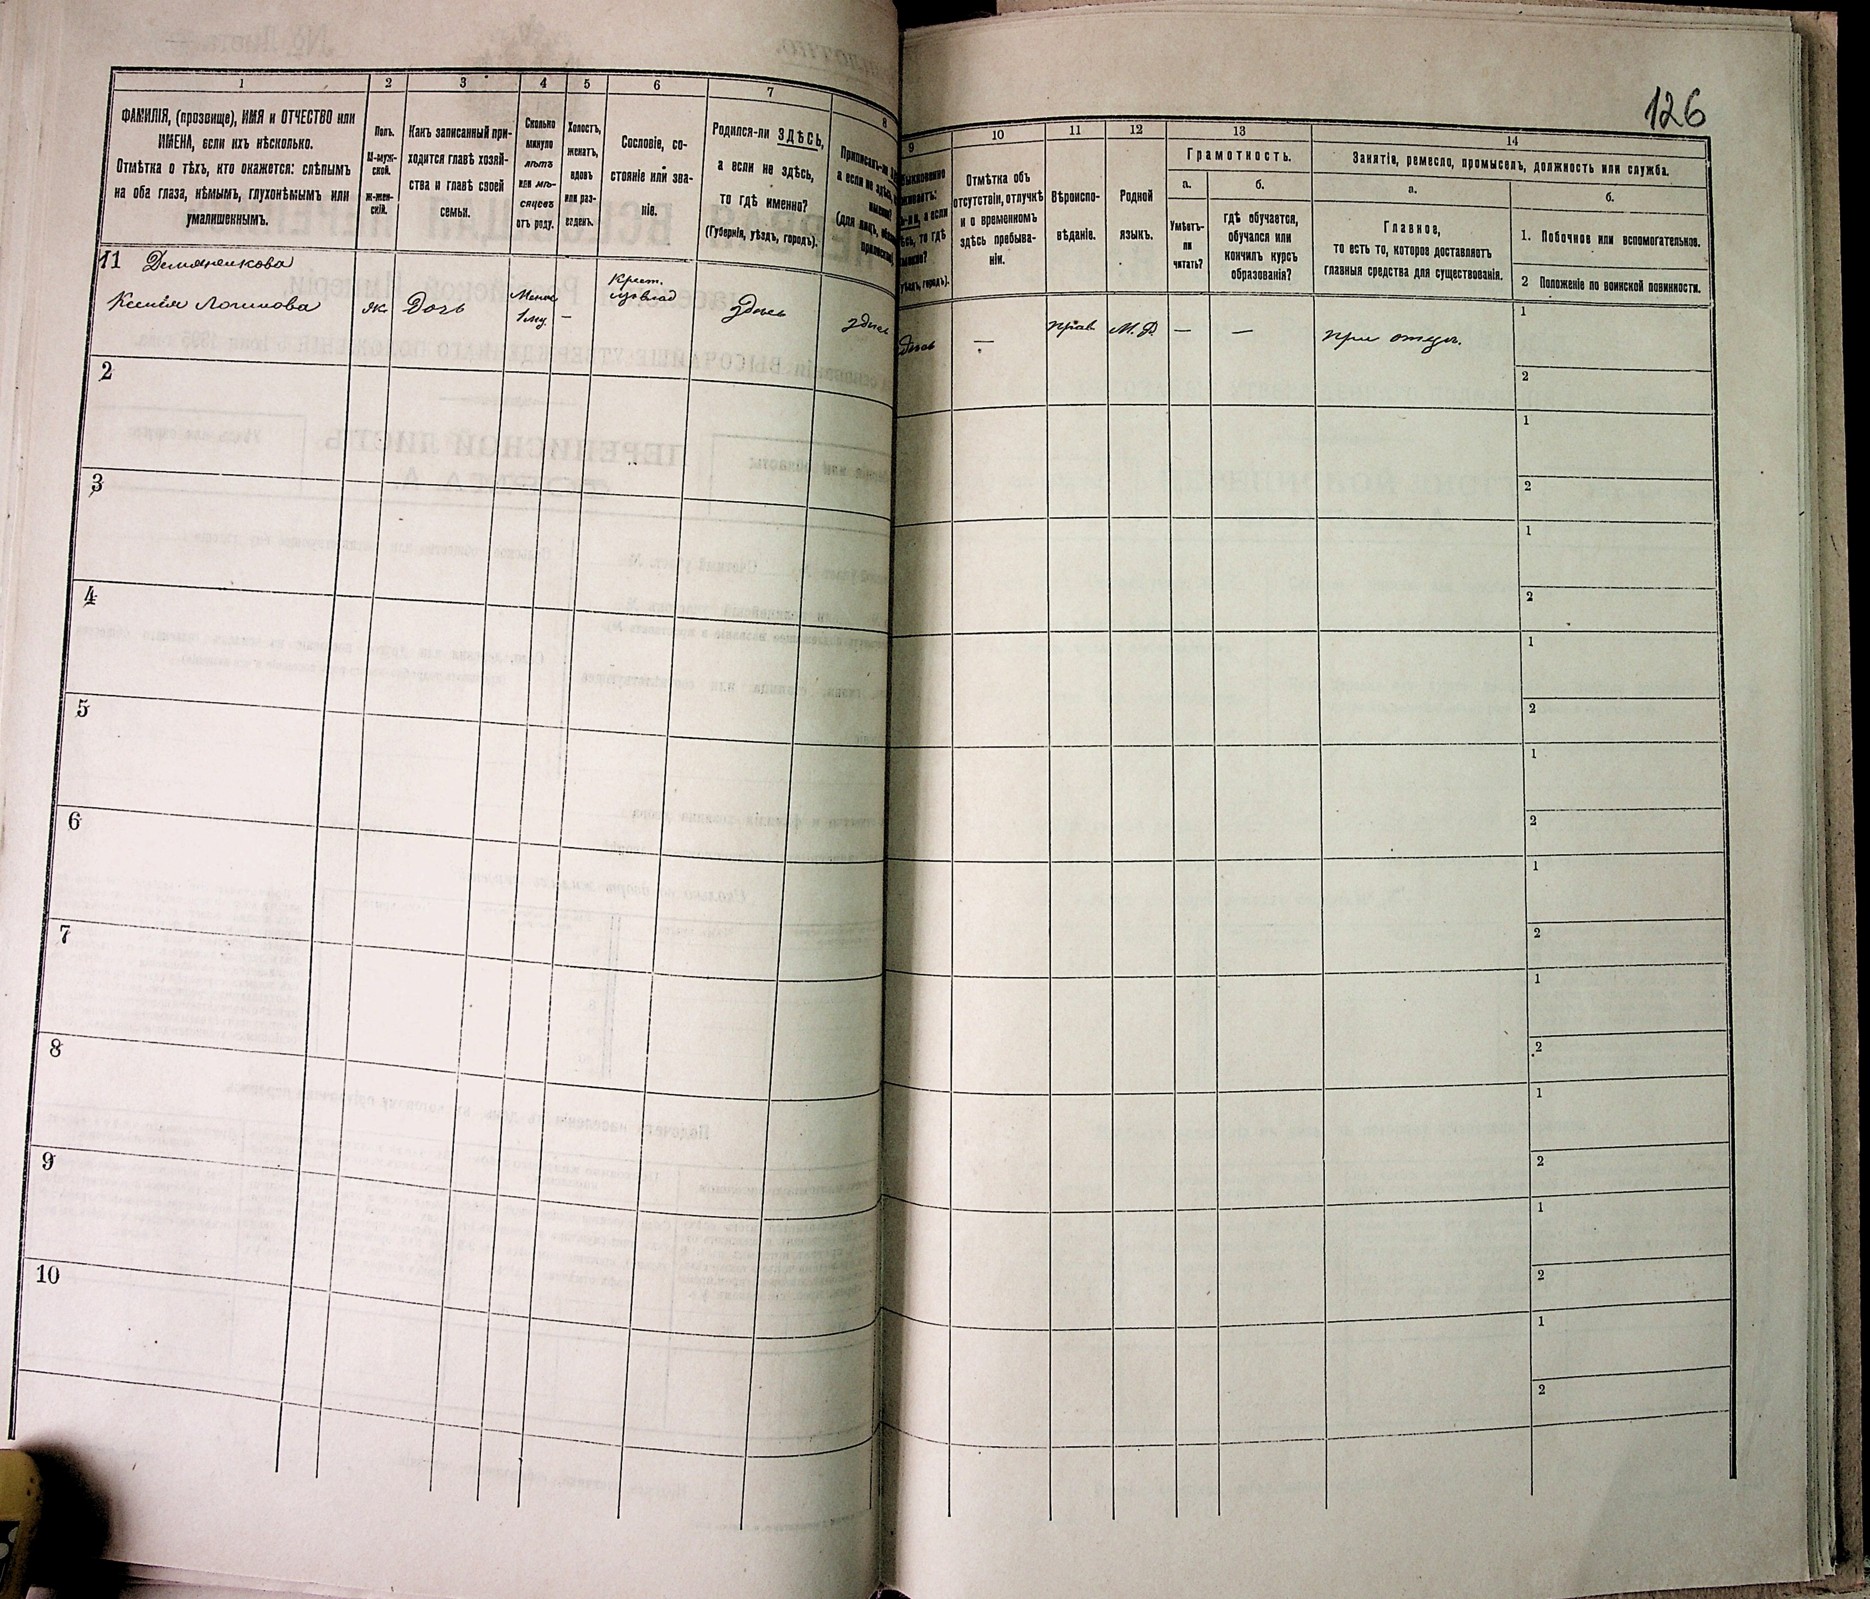 126
1
ФАМИЛІЯ, (прозвище), ИМЯ и ОТЧЕСТВО или
ИМЕНА, если ихъ нѣсколько.
Отмѣтка о тѣхъ, кто окажется: слѣпымъ
на оба глаза, нѣмымъ, глухонѣмымъ или
умалишеннымъ.
2
Полъ.
М-муж-
ской.
ж-жен-
скій.
3
Какъ записанный при-
ходится главѣ хозяй-
ства и главѣ своей
семьи.
4
Сколько
минуло
лѣтъ
или мѣ-
сяцевъ
отъ роду.
5
Холостъ,
женатъ,
вдовъ
или раз-
веденъ.
6
Сословіе, со-
стояніе или зва-
ніе.
7
Родился-ли ЗДѢСЬ,
а если не здѣсь,
то гдѣ именно?
(Губернія, уѣздъ, городъ).
8
9
10
Отмѣтка объ
отсутствіи, отлучкѣ
и о временномъ
здѣсь пребыва-
ніи.
11
Вѣроиспо-
вѣданіе.
12
Родной
языкъ.
13
Грамотность.
а.
Умѣетъ-
ли
читать?
б.
гдѣ обучается,
обучался или
кончилъ курсъ
образованія?
14
Занятіе, ремесло, промыселъ, должность или служба.
а.
Главное,
то есть то, которое доставляетъ
главныя средства для существованія.
б.
1. Побочное или вспомогательное.
2 Положеніе по воинской повинности.
11 Демяненкова
Ксенія Логинова
ж.
Дочь
Менѣе
1 му.
—
Крест.
здѣсь
здѣсь
—
прав
М. Р.
—
—
при отцѣ.
1
2
2
1
2
3
1
2
4
1
2
5
1
2
6
1
2
7
1
2
8
1
2
9
1
2
10
1
2